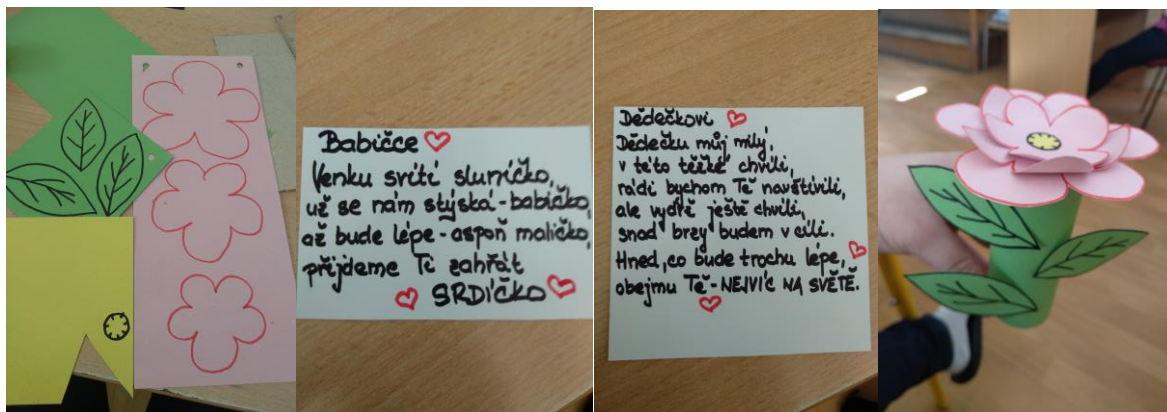 Babičce
Venku svítí sluníčko,
už se nám stýská - babičko,
až bude lépe - aspoň maličko,
přijdeme Ti zahřát
SRDÍČKO
Dědečkovi
Dědečku můj milý,
v této těžké chvíli,
rádi bychom Tě navštívili,
ale vydrž ještě chvíli,
snad brzy budem v cíli.
Hned, co bude trochu lépe,
obejmu Tě - NEJVÍC NA SVĚTĚ.